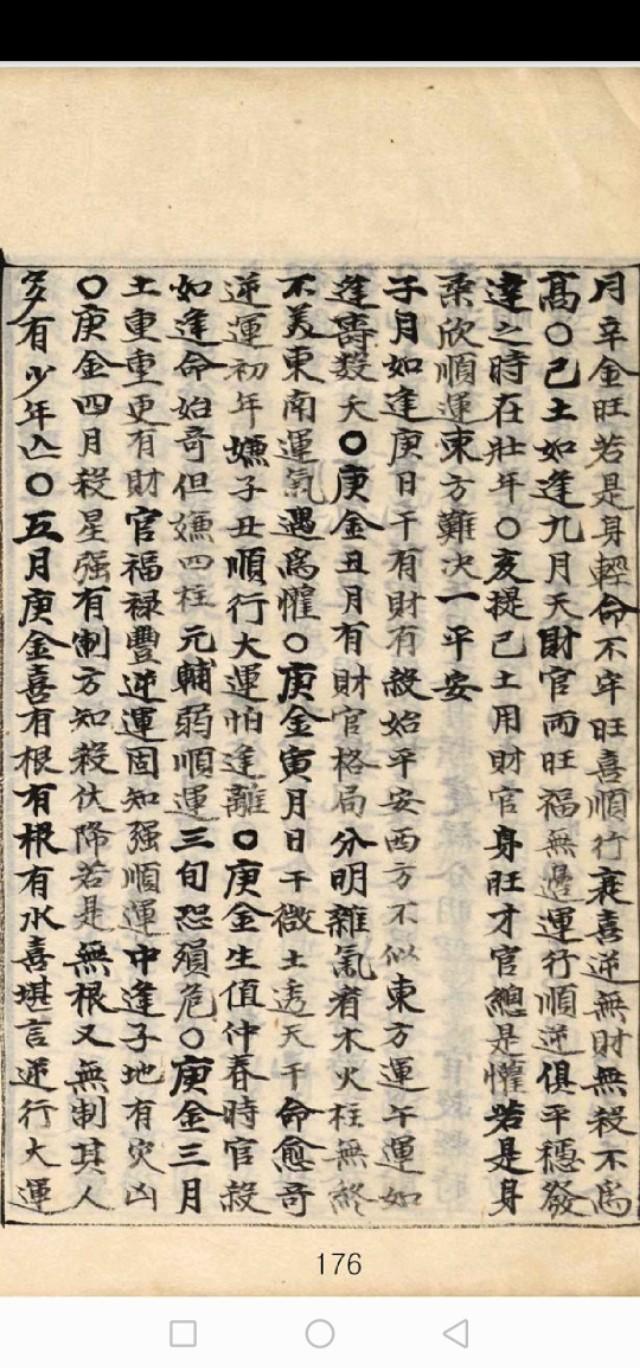 月辛金旺若是身輕命不牢旺喜順行衰喜逆無財無殺不爲
高○己土如逢九月天財官両旺福無邊運行順逆俱平穩發
達之時在壯年○亥提己土用財官身旺才官總是懽若是身
柔欣順運東方難决一平安
子月如逢庚日干有財有殺始平安西方不似東方運午運如
逢壽数夭○庚金丑月有財官格局分明雜氣者木火柱無終
不美東南運氣遇爲懽○庚金寅月日干微土透天干命愈奇
逆運初年嫌子丑順行大運怕逢離○庚金生值仲春時官殺
如逢命始奇但嫌四柱元輔弱順運三旬恐殞危○庚金三月
土重重更有財官福禄豐逆運固知强順運中逢子地有灾凶
○庚金四月殺星强有制方知殺伏降若是無根又無制其人
多有少年亾○五月庚金喜有根有根有水喜堪言逆行大運
176